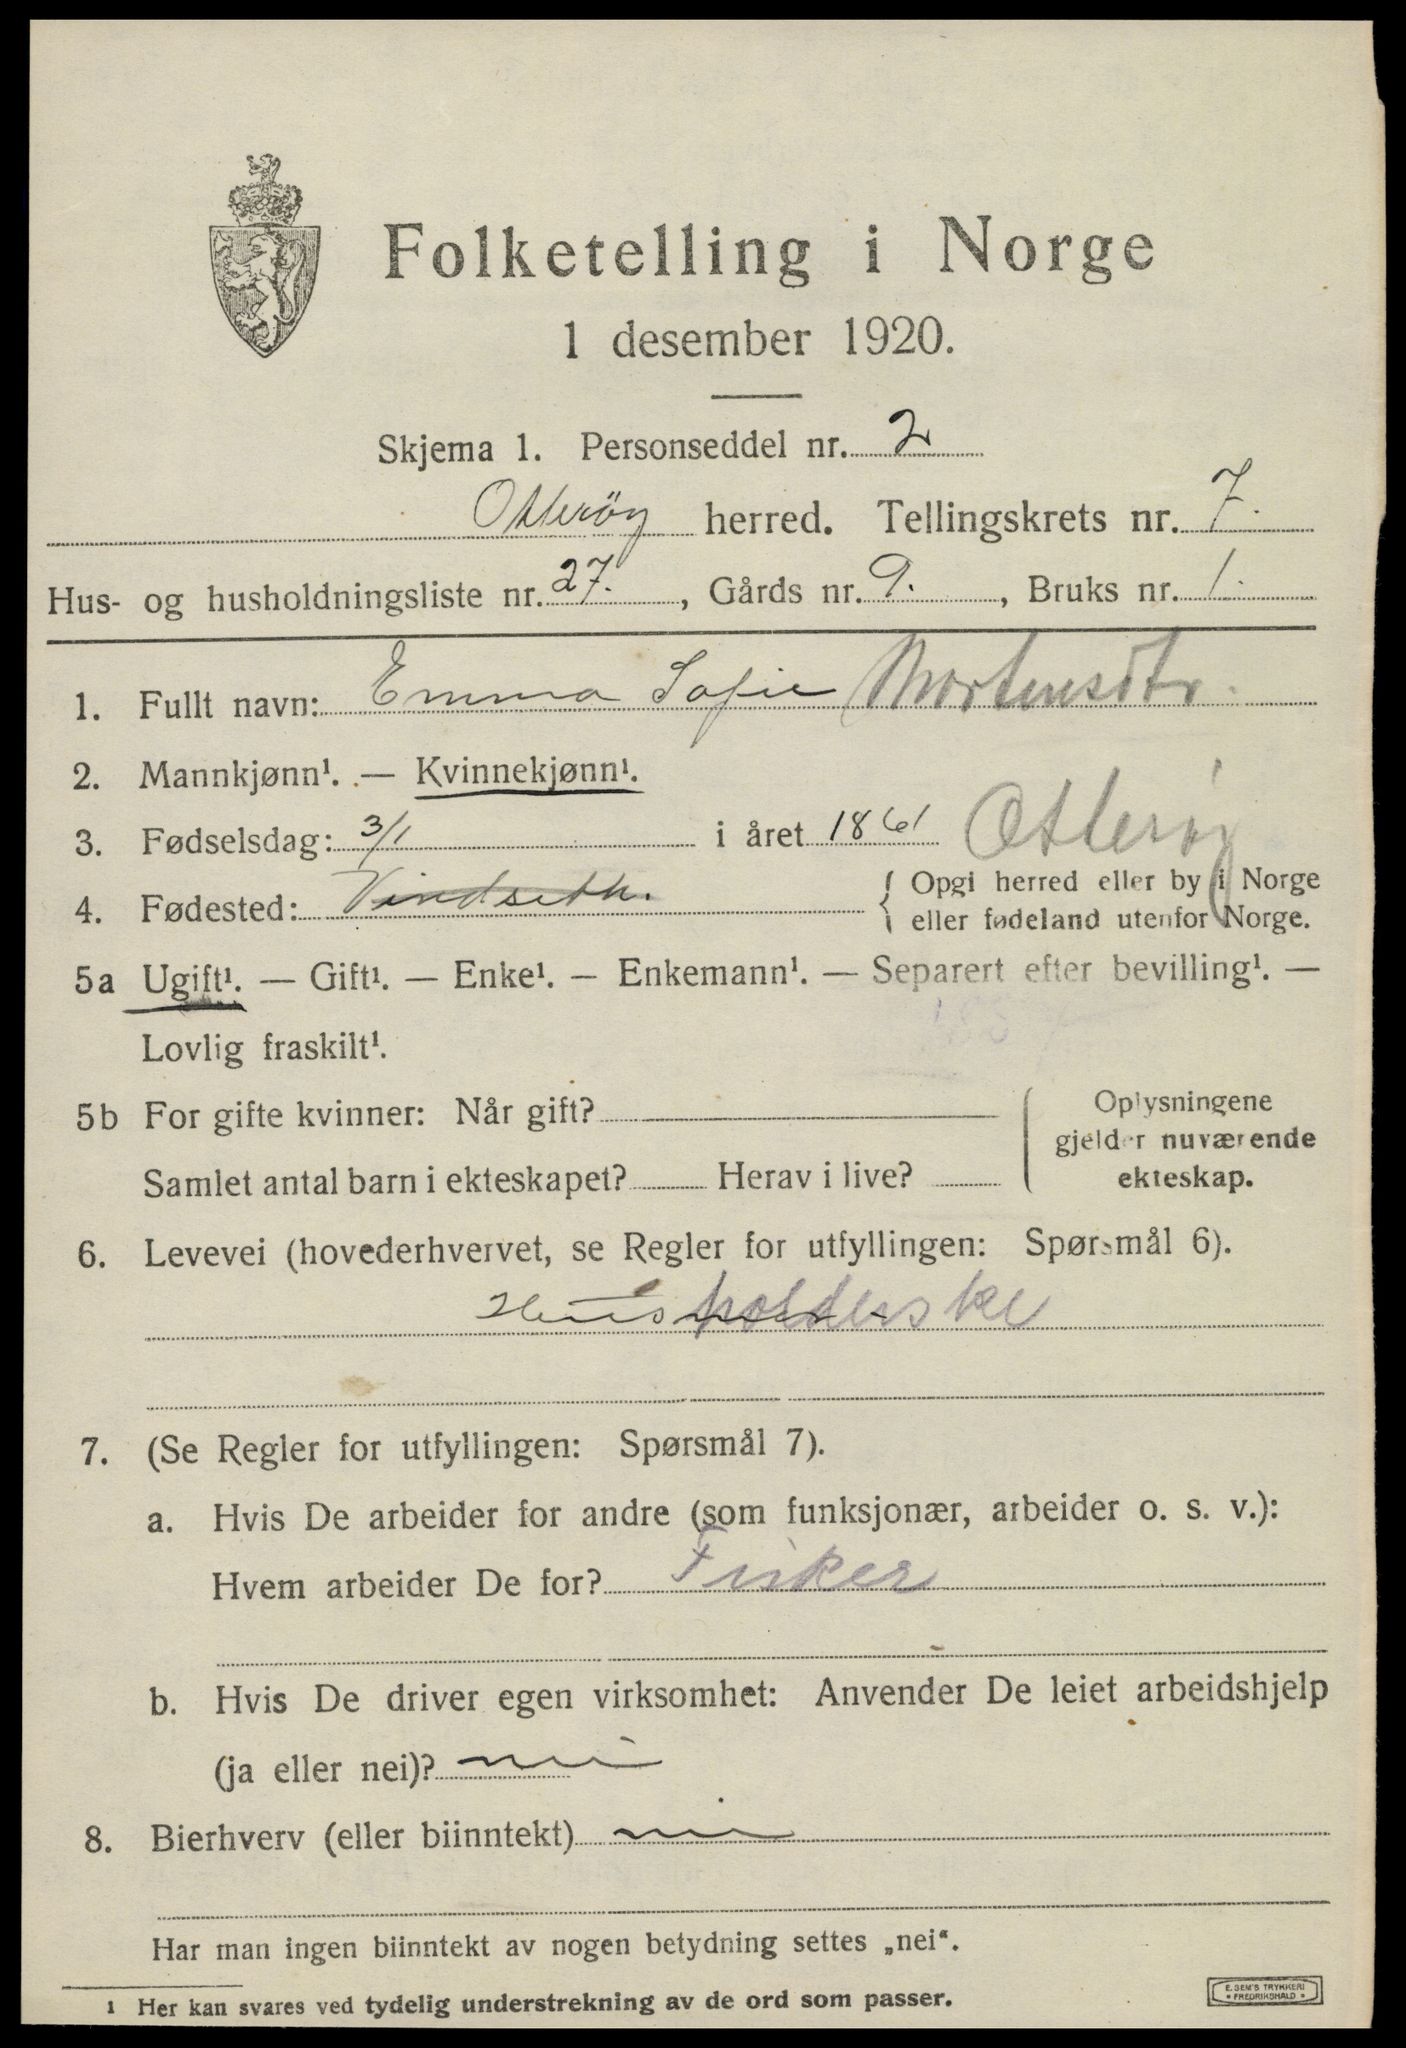 Folketelling i Norge
1 desember 1920.
Skjema 1. Personseddel nr. 2
Otterøy herred. Tellingskrets nr. 7.
Hus- og husholdningsliste nr. 27., Gårds nr. 9., Bruks nr. 1.
1. Fullt navn: Emma Sofie Mortensdtr.
2. Mannkjønn¹. — Kvinnekjønn¹.
3. Fødselsdag: 3/1 i året 1861 Otterøy
4. Fødested: Vindseth. { Opgi herred eller by i Norge
eller fødeland utenfor Norge.
5a Ugift¹. — Gift¹. — Enke¹. — Enkemann¹. — Separert efter bevilling¹. —
Lovlig fraskilt¹.
5b For gifte kvinner: Når gift?
Samlet antal barn i ekteskapet? Herav i live?
Oplysningene
gjelder nuværende
ekteskap.
6. Levevei (hovederhvervet, se Regler for utfyllingen: Spørsmål 6).
Husholderske
7. (Se Regler for utfyllingen: Spørsmål 7).
a. Hvis De arbeider for andre (som funksjonær, arbeider o. s. v.):
Hvem arbeider De for? Fisker
b. Hvis De driver egen virksomhet: Anvender De leiet arbeidshjelp
(ja eller nei)? nei
8. Bierhverv (eller biinntekt) nei
Har man ingen biinntekt av nogen betydning settes „nei“.
1 Her kan svares ved tydelig understrekning av de ord som passer.
E. SEM'S TRYKKERI
* FREDRIKSHALD *